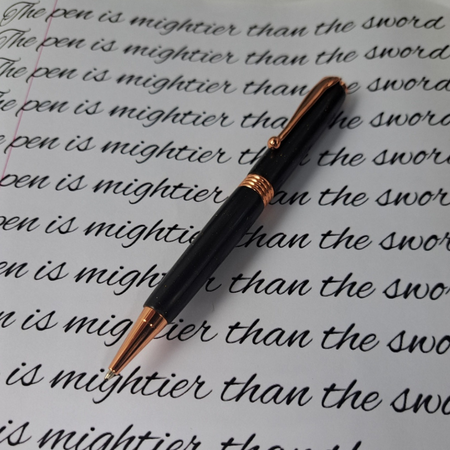 The pen is mightier than the sword
The pen is mightier than the sword
The pen is mightier than e sword
he pen is mightier than e sword
e pen is mightier an the sword
pen is mightier than the sword
pen is mighti han the swor
en is migh than the swor
n is mig ier than the swo
is mightier than the swo
is mightier than the